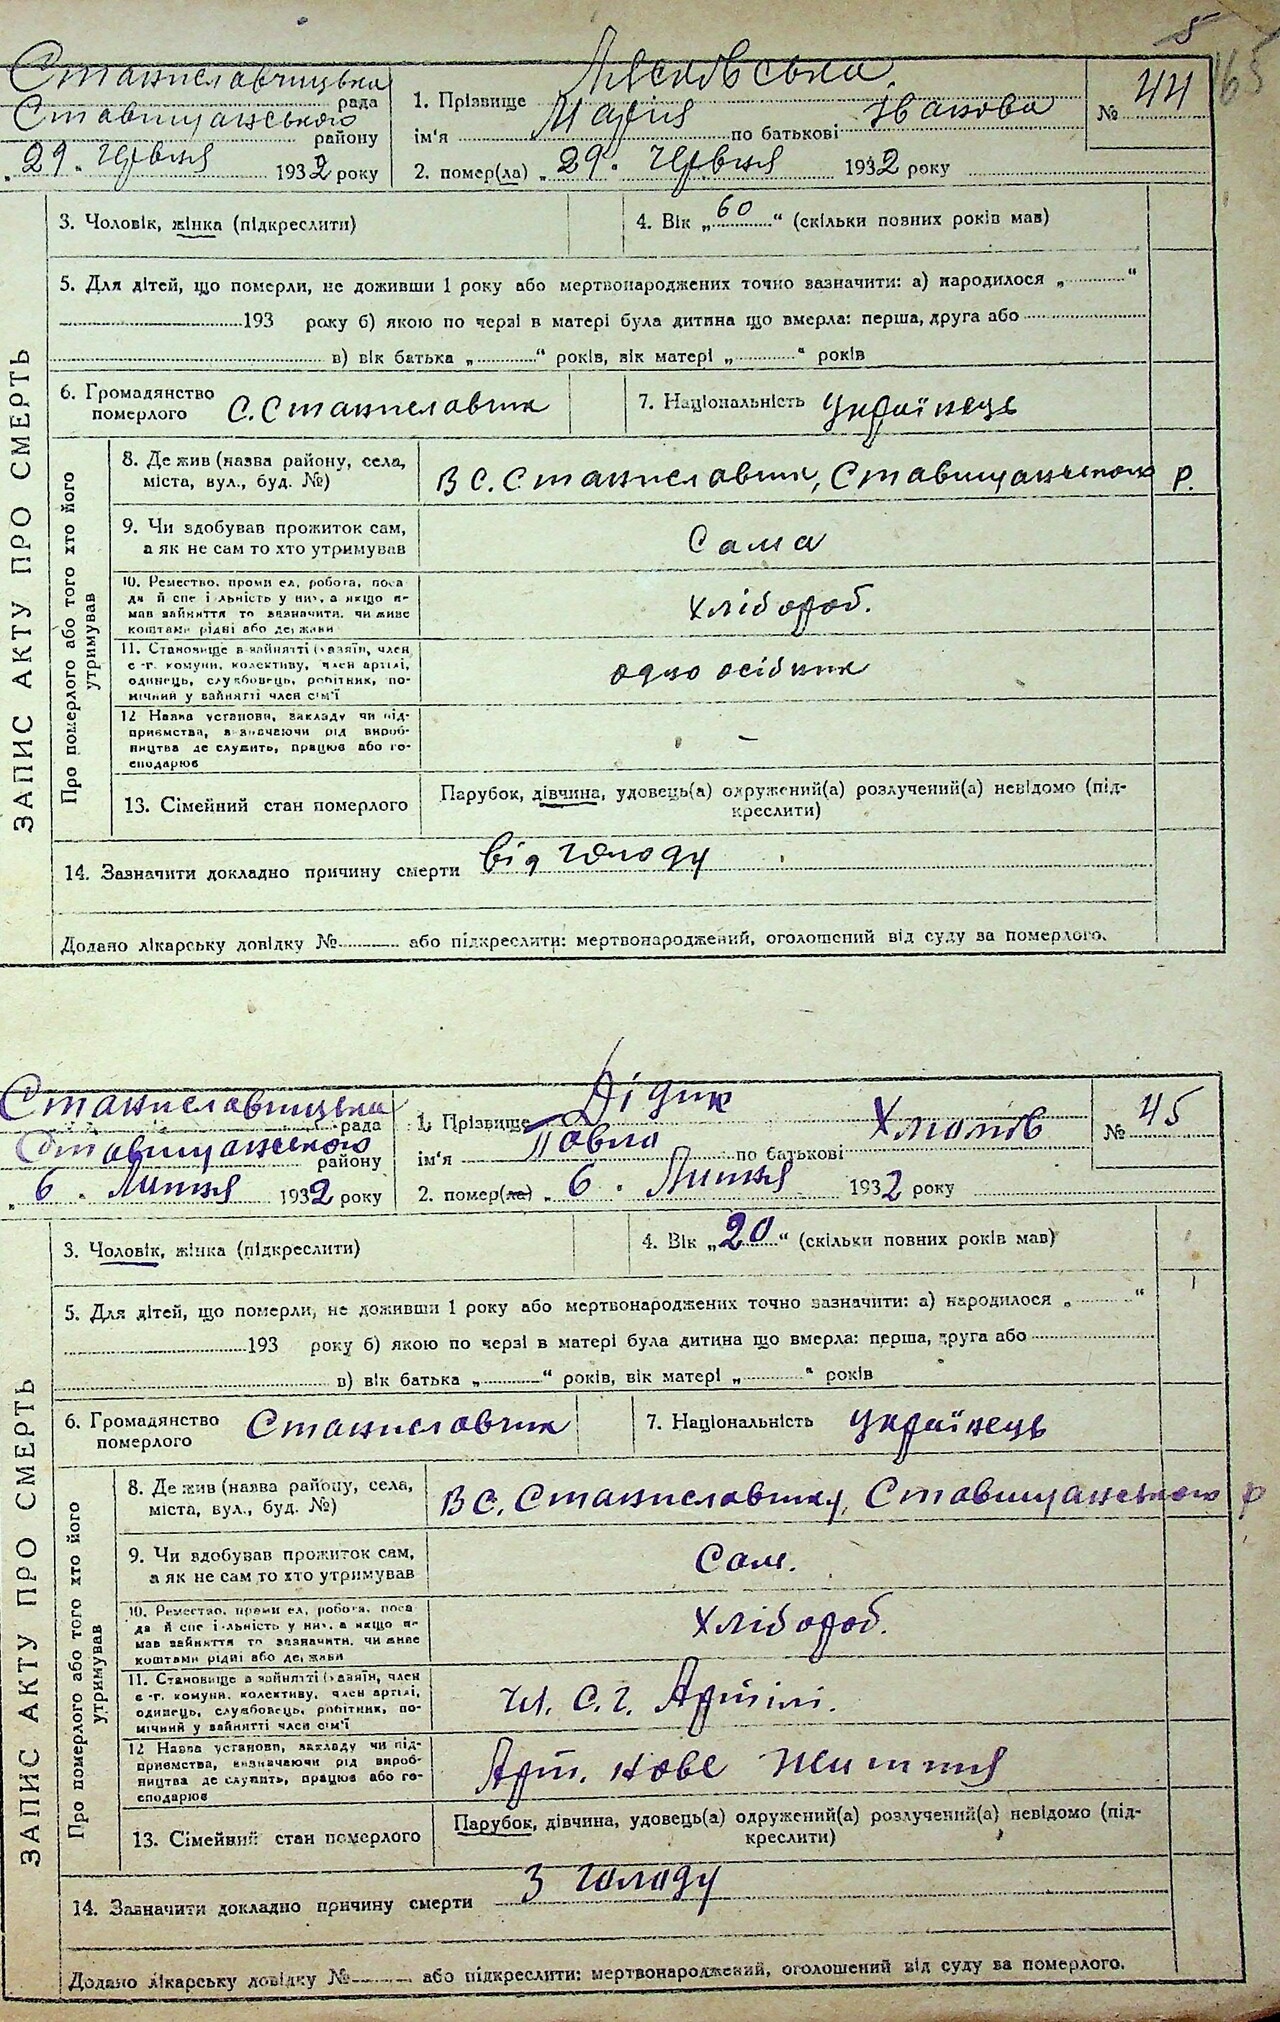 5
165
Станиславчицька
рада
Ставищанського
району
29. Червня 1932 року
1. Прізвище
ім'я Марія по батькові Іванова
2. помер(ла) „29. Червня 1932 року
№ 44
ЗАПИС АКТУ ПРО СМЕРТЬ
3. Чоловік, жінка (підкреслити)
4. Вік „60“ (скільки повних років мав)
5. Для дітей, що померли, не доживши 1 року або мертвонароджених точно зазначити: а) народилося „ “
193 року б) якою по черзі в матері була дитина що вмерла: перша, друга або
в) вік батька „ “ років, вік матері „ “ років
6. Громадянство
померлого С. Станиславчик
7. Національність Українець
Про померлого або того хто його
утримував
8. Де жив (назва району, села,
міста, вул., буд. №)
В С. Станиславчик, Ставищанського р.
9. Чи здобував прожиток сам,
а як не сам то хто утримував
Сама
10. Ремество, проми ел, робота, поса
да й спе і льність у них, а якщо н-
мав зайняття то зазначити, чи живе
коштами рідні або держави
Хлібороб.
11. Становище в зайнятті (хазяїн, член
с-г. комуни, колективу, член артілі,
одинець, службовець, робітник, по-
мічний у зайнятті член сім'ї
одноосібник
12 Назва установи, закладу чи під-
приємства, визначаючи рід вироб-
ництва де служить, працює або го-
сподарює
–
13. Сімейний стан померлого
Парубок, дівчина, удовець(а) одружений(а) розлучений(а) невідомо (під-
креслити)
14. Зазначити докладно причину смерти від голоду
Додано лікарську довідку № або підкреслити: мертвонароджений, оголошений від суду за померлого.
Станиславчицька
рада
Ставищанського
району
„6. Липня 1932 року
1. Прізвище Дідик
ім'я Павло по батькові
2. помер(ла) „6. Липня 1932 року
№ 45
ЗАПИС АКТУ ПРО СМЕРТЬ
3. Чоловік, жінка (підкреслити)
4. Вік „20“ (скільки повних років мав)
5. Для дітей, що померли, не доживши 1 року або мертвонароджених точно зазначити: а) народилося „ “
193 року б) якою по черзі в матері була дитина що вмерла: перша, друга або
в) вік батька „ “ років, вік матері „ “ років
6. Громадянство
померлого Станиславчик
7. Національність Українець
Про померлого або того хто його
утримував
8. Де жив (назва району, села,
міста, вул., буд. №)
В С. Станиславчику, Ставищанського р
9. Чи здобував прожиток сам,
а як не сам то хто утримував
Сам.
10. Ремество, проми ел, робота, поса
да й спе і льність у них, а якщо н-
мав зайняття то зазначити, чи живе
коштами рідні або держави
Хлібороб.
11. Становище в зайнятті (хазяїн, член
с-г. комуни, колективу, член артілі,
одинець, службовець, робітник, по-
мічний у зайнятті член сім'ї
Чл. С. Г. Артілі.
12 Назва установи, закладу чи під-
приємства, визначаючи рід вироб-
ництва де служить, працює або го-
сподарює
Арт. Нове Життя
13. Сімейний стан померлого
Парубок, дівчина, удовець(а) одружений(а) розлучений(а) невідомо (під-
креслити)
14. Зазначити докладно причину смерти З голоду
Додано лікарську довідку № або підкреслити: мертвонароджений, оголошений від суду за померлого.